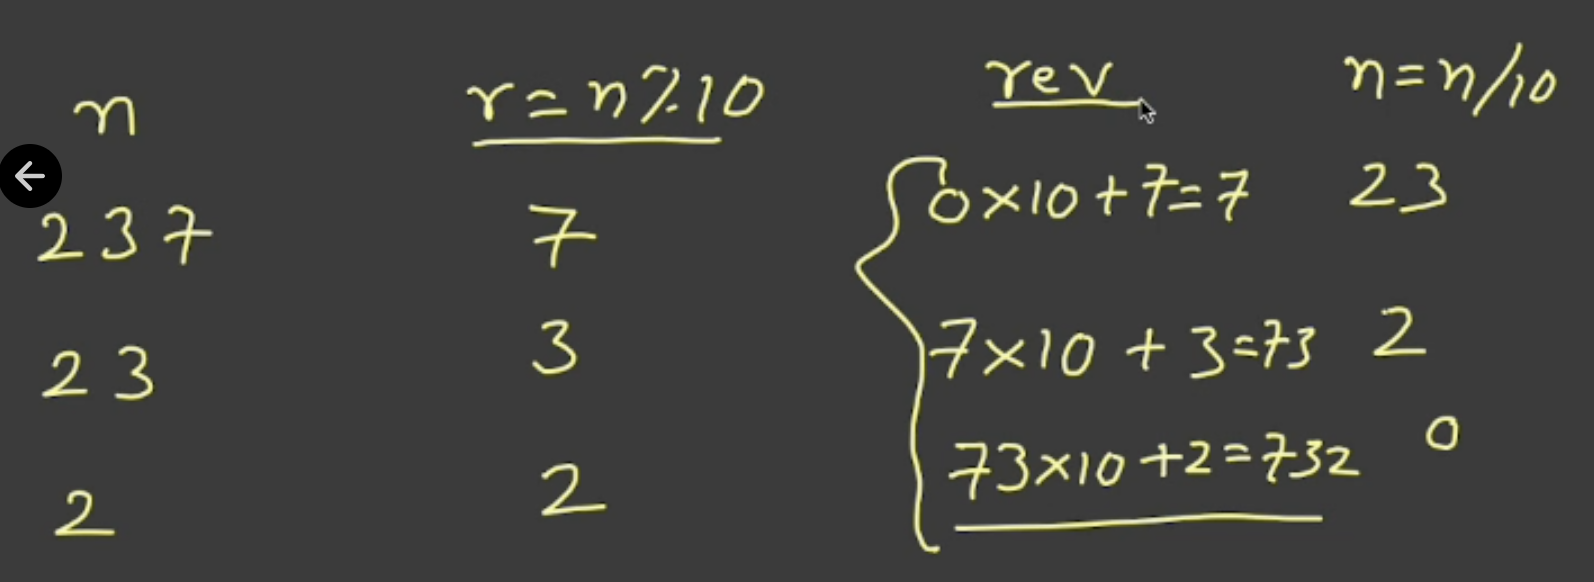 n r=n%10 rev n=n/10
237 7 0×10+7=7 23
23 3 7×10+3=73 2
2 2 73×10+2=732 0